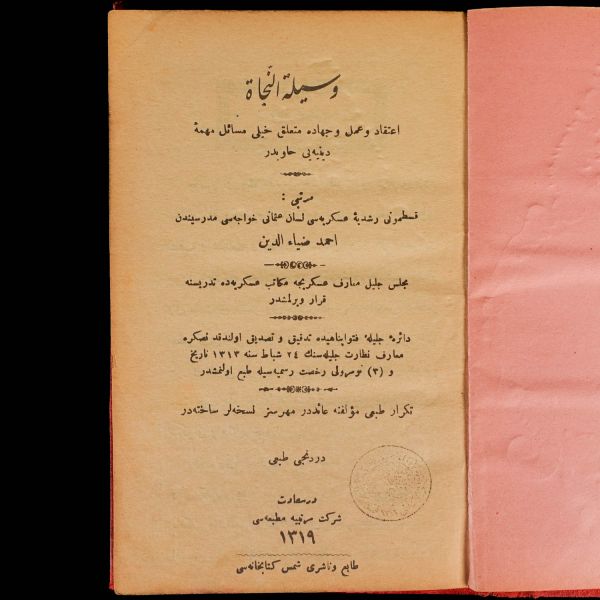 وسیلة النجاة
اعتقاد و عمل و جهاده متعلق خیلی مسائل مهمهٔ
دینیه‌یی حاویدر
مرتبی :
قسطمونی رشدیهٔ عسکریه‌سی لسان عثمانی خواجه‌سی مدرسیندن
احمد ضیاء الدین
مجلس جلیل معارف عسکریجه مکاتب عسکریه‌ده تدریسنه
قرار ویرلمشدر
دائرهٔ جلیلهٔ فتوا پناهیده تدقیق و تصدیق اولندقد نصکره
معارف نظارت جلیله‌سنك ٢٤ شباط سنه ١٣١٣ تاریخ
و (٣) نومرولی رخصت رسمیه‌سیله طبع اولنمشدر
تکرار طبعی مؤلفنه عائددر مهرسز نسخه‌لر ساخته‌در
دردنجی طبعی
درسعادت
شرکت مرتبیه مطبعه‌سی
١٣١٩
طابع و ناشری شمس کتابخانه‌سی